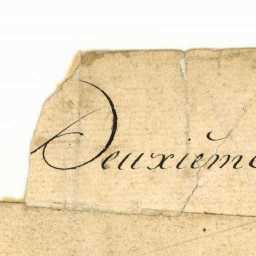 Deuxiéme